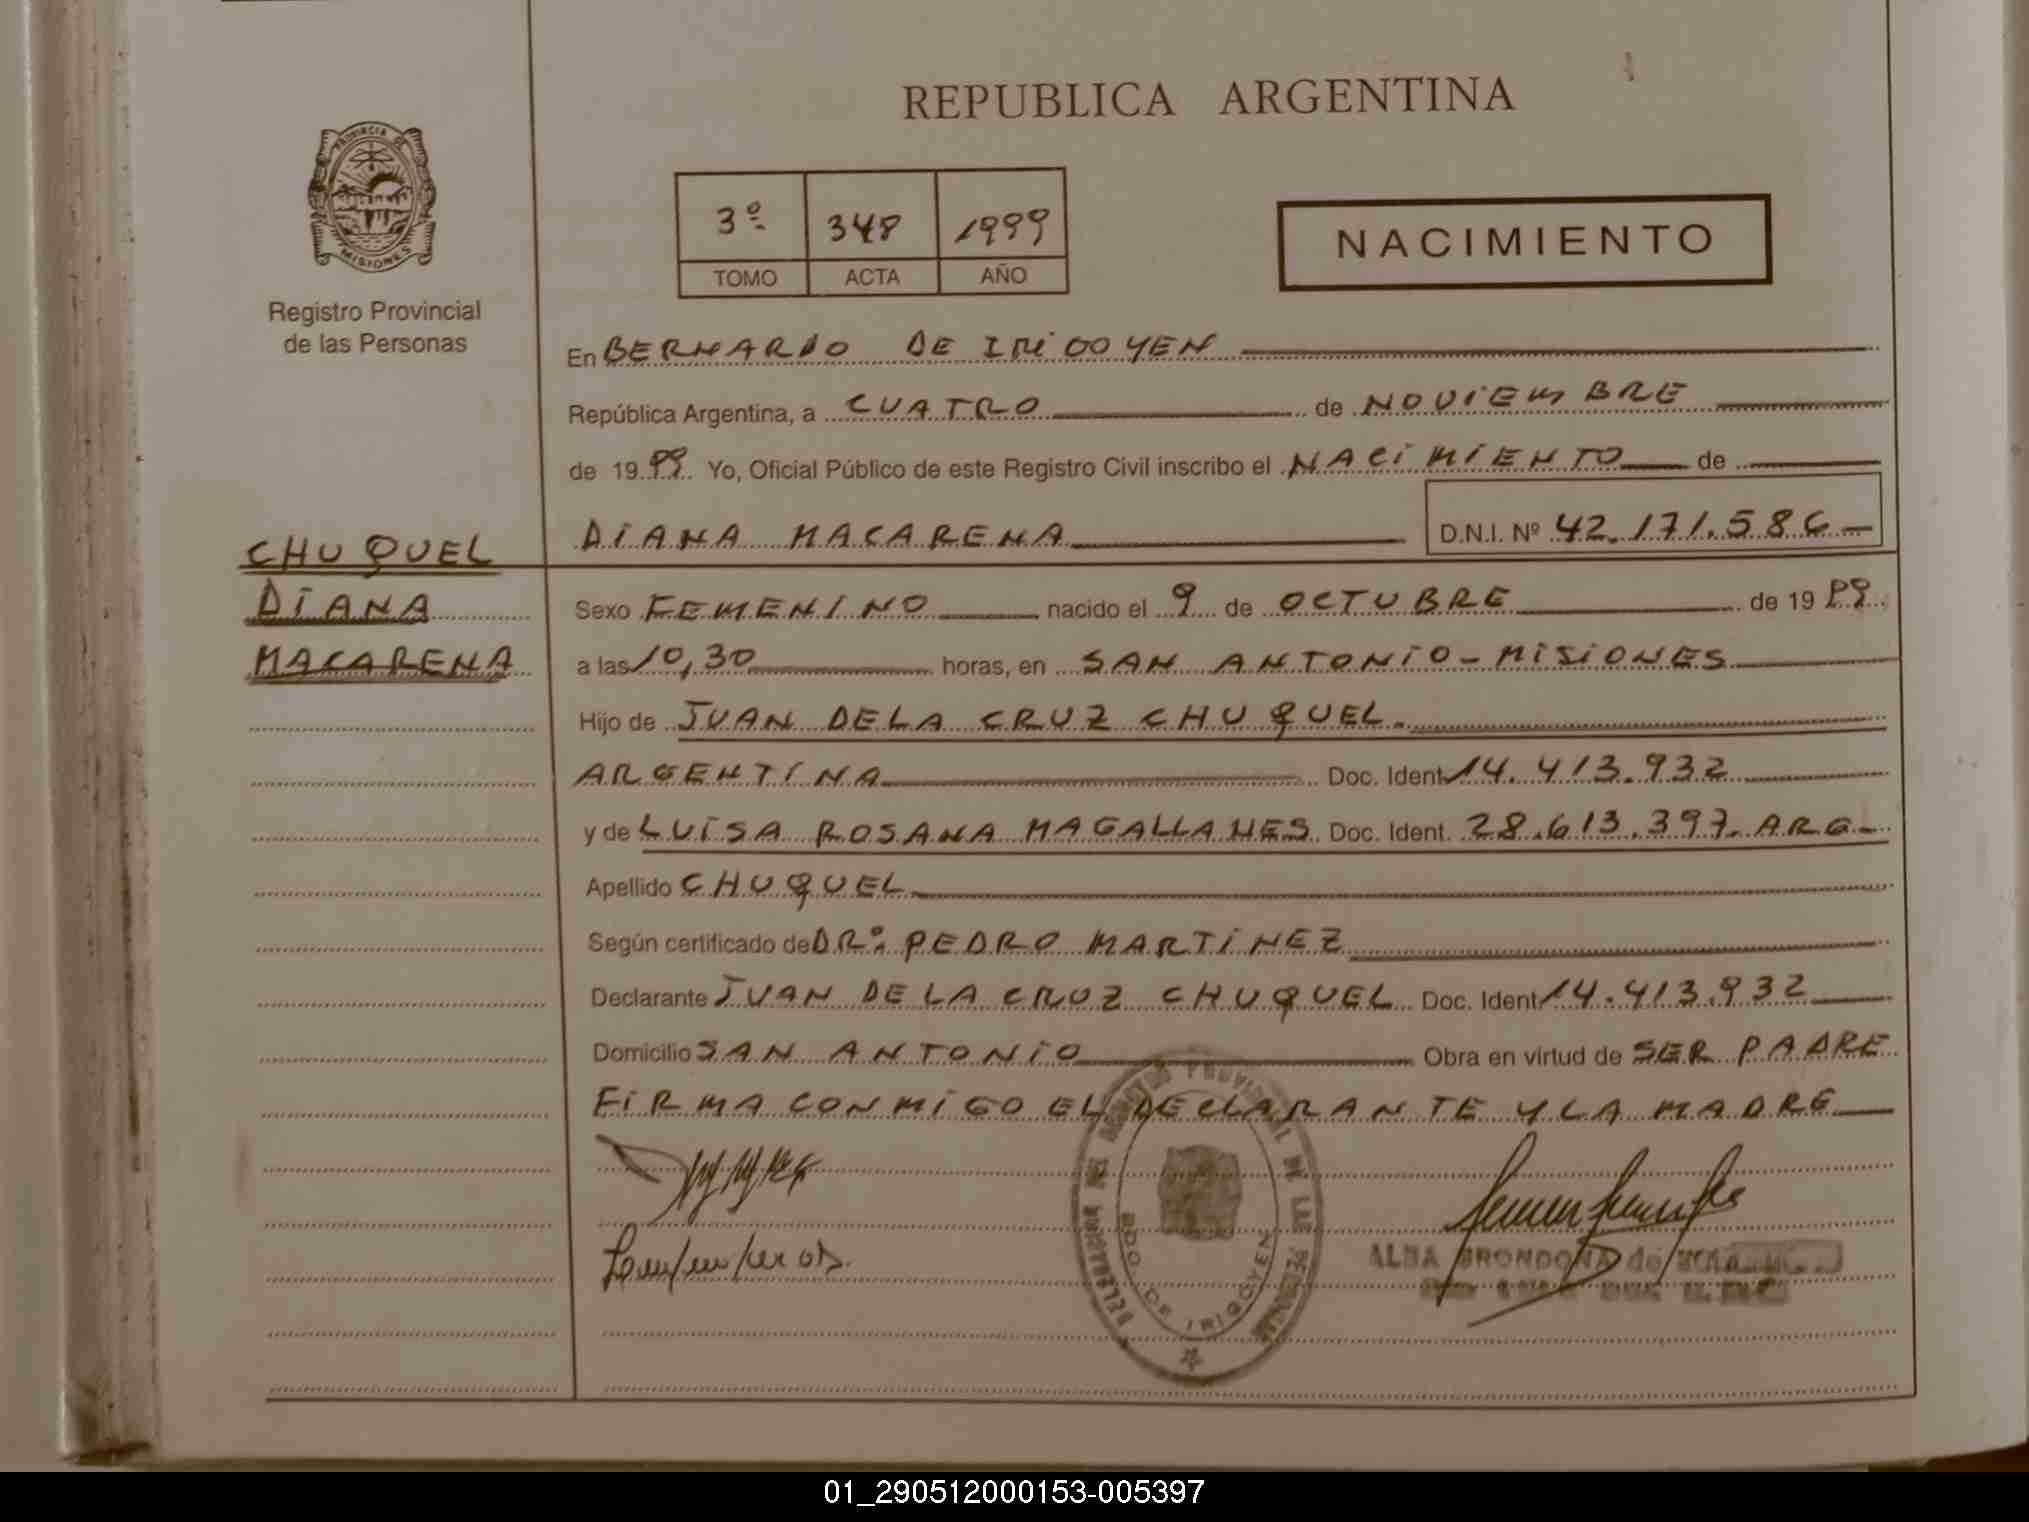 REPUBLICA ARGENTINA
PROVINCIA DE
MISIONES
Registro Provincial
de las Personas
3º 348 1999
TOMO ACTA AÑO
NACIMIENTO
En BERNARDO DE IRIGOYEN
República Argentina, a CUATRO de NOVIEMBRE
de 1999 Yo, Oficial Público de este Registro Civil inscribo el NACIMIENTO de
DIANA MACARENA D.N.I. Nº 42.171.586
CHUQUEL
DIANA
MACARENA
Sexo FEMENINO nacido el 9 de OCTUBRE de 1999
a las 10,30 horas, en SAN ANTONIO - MISIONES
Hijo de JUAN DE LA CRUZ CHUQUEL
ARGENTINA Doc. Ident. 14.413.932
y de LUISA ROSANA MAGALLANES Doc. Ident. 28.613.397 ARG.
Apellido CHUQUEL
Según certificado de DR. PEDRO MARTINEZ
Declarante JUAN DE LA CRUZ CHUQUEL Doc. Ident 14.413.932
Domicilio SAN ANTONIO Obra en virtud de SER PADRE
FIRMA CONMIGO EL DECLARANTE Y LA MADRE
DELEGACION DEL REGISTRO PROVINCIAL DE LAS PERSONAS
BDO. DE IRIGOYEN
ALBA BRONDONA de
01_290512000153-005397